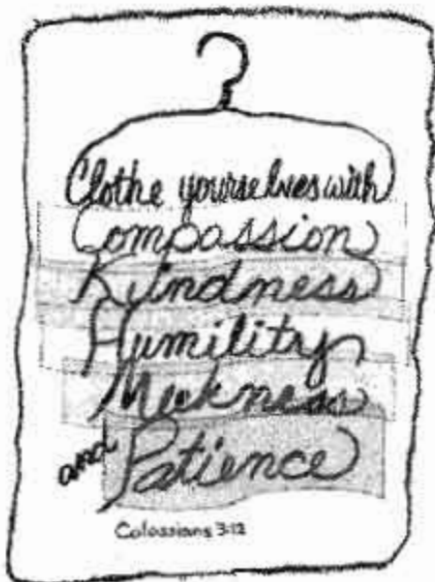 Clothe yourselves with
Compassion
Kindness
Humility
Meekness
and Patience
Colossians 3:12